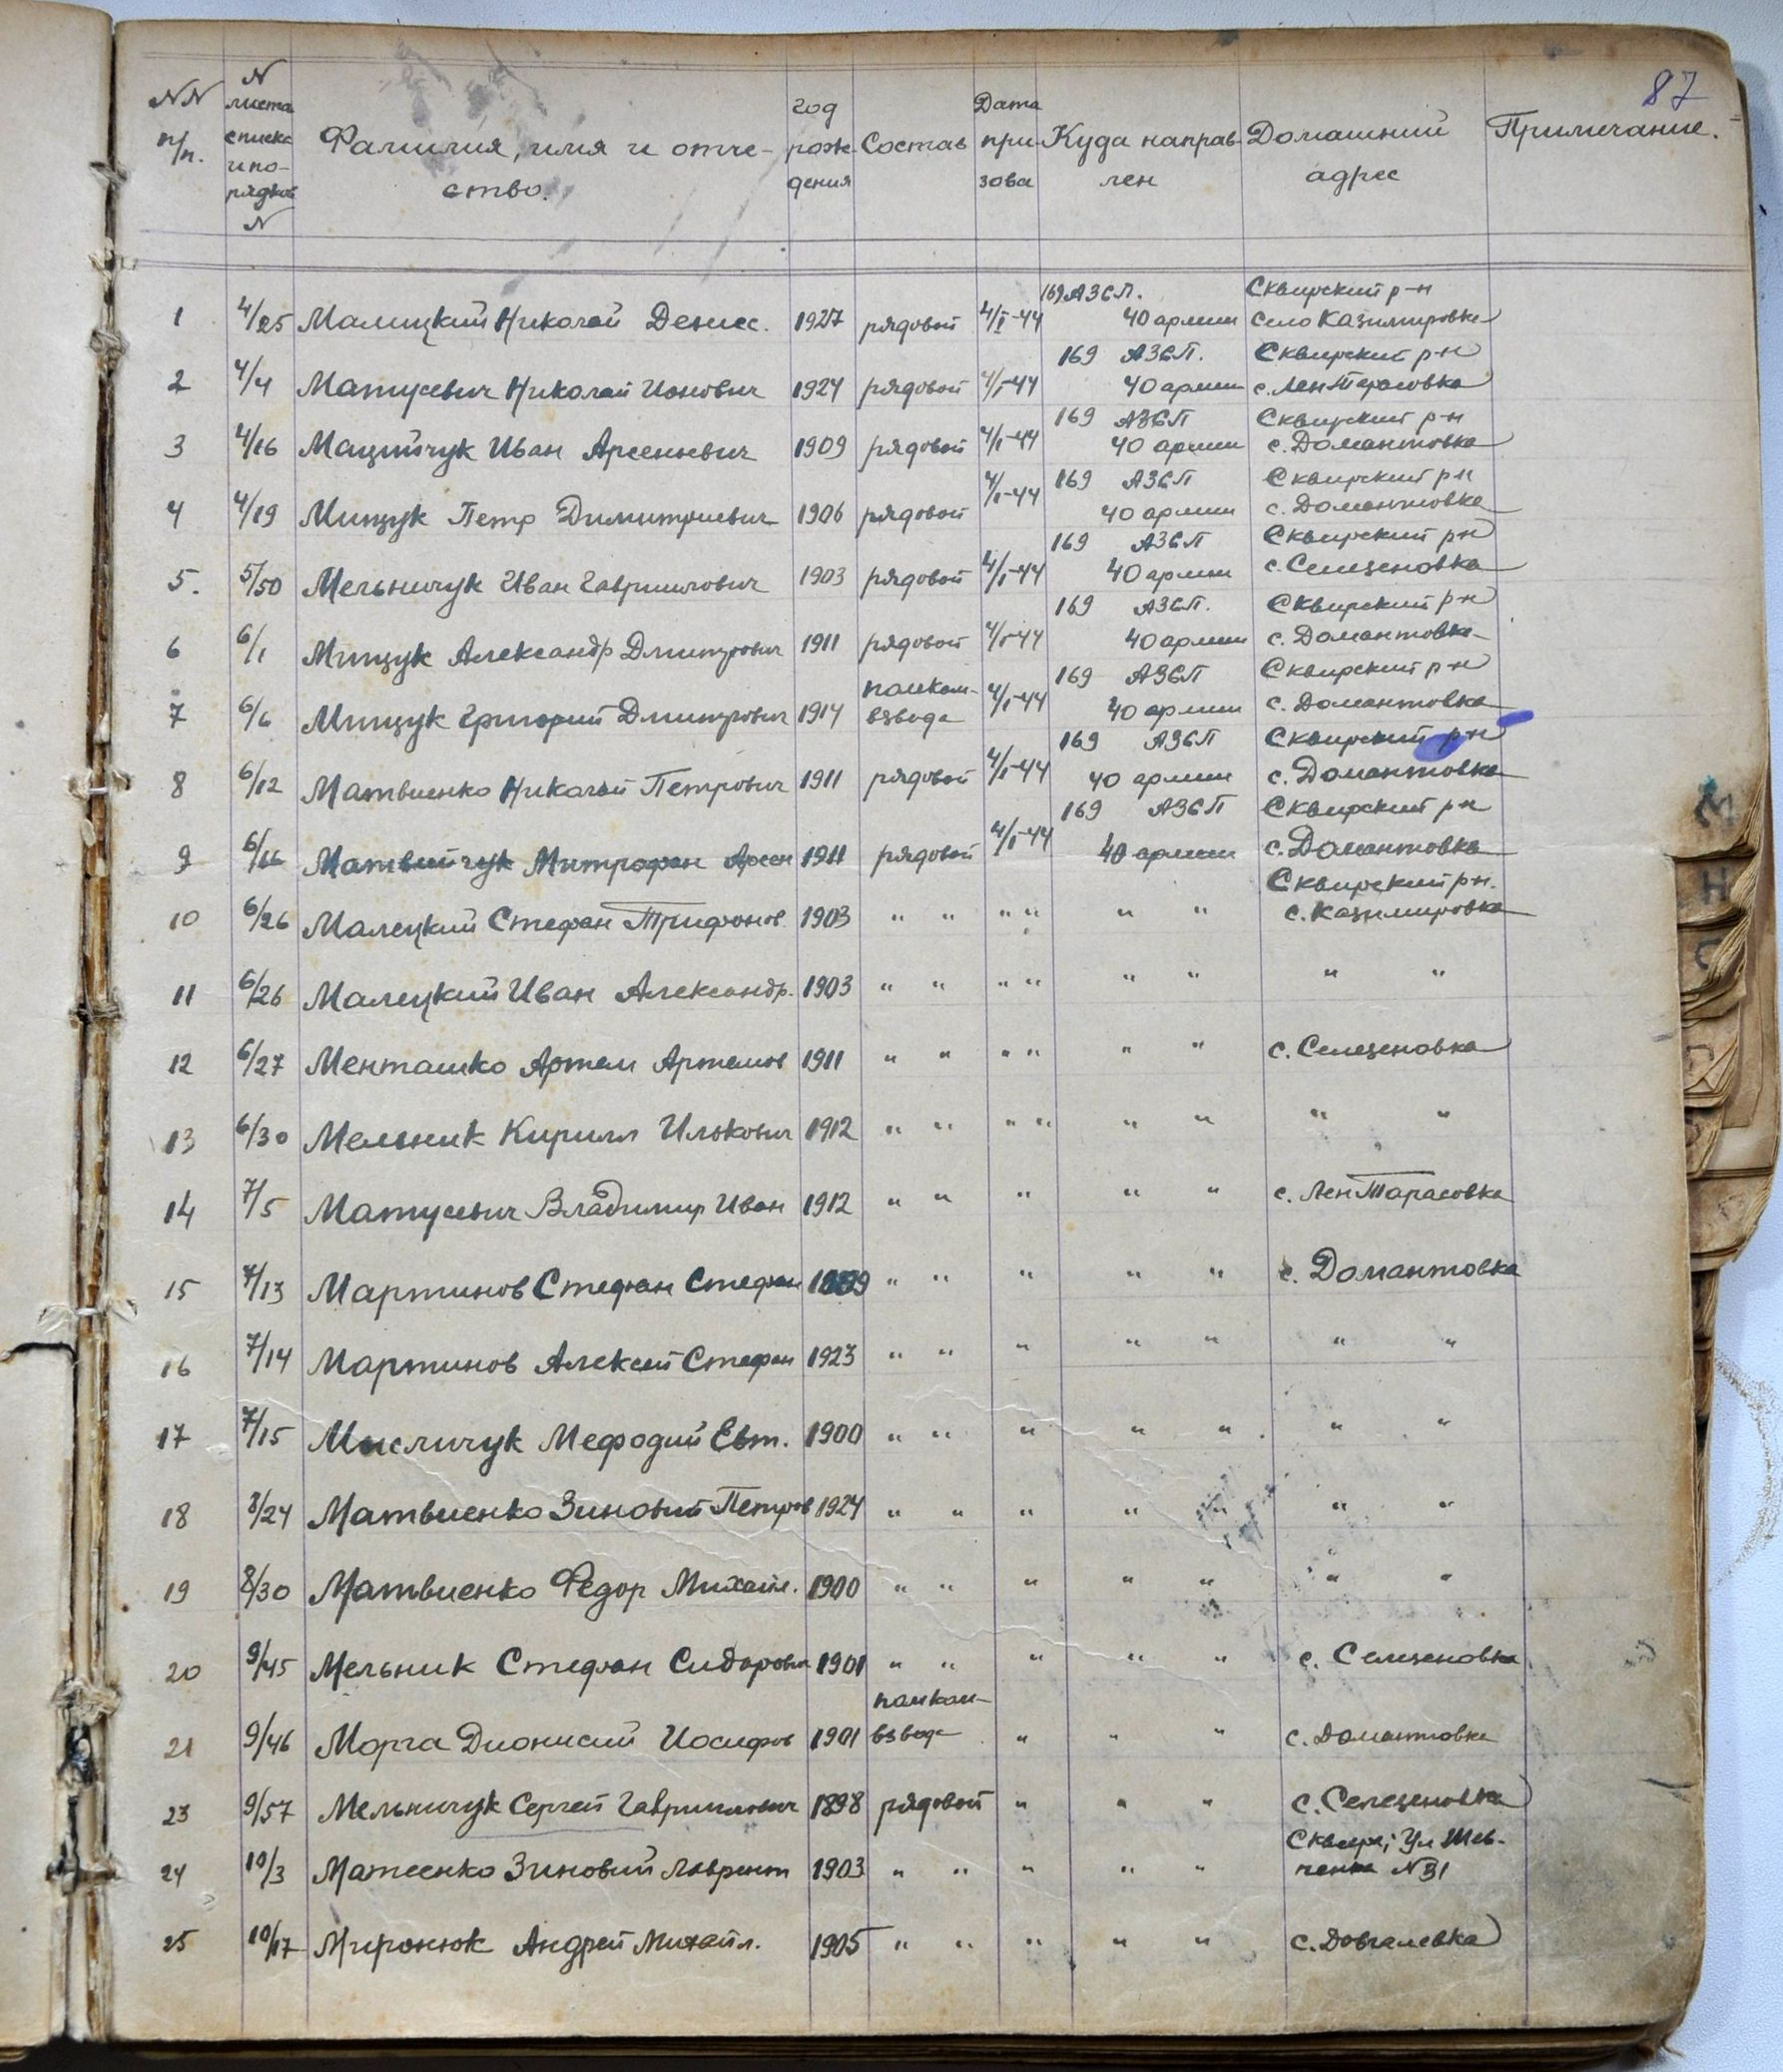 87
NN п/п. N листа списка и по-рядков N Фамилия, имя и отче-ство. год рож-дения Состав Дата при-зова Куда направ-лен Домашний адрес Примечание.
1 4/25 Малицкий Николай Денис. 1927 рядовой 4/I-44 169 АЗСП. 40 армии Сквирский р-н село Казимировка
2 4/4 Матусевич Николай Ионович 1924 рядовой 4/I-44 169 АЗСП. 40 армии Сквирский р-н с. Лен Тарасовка
3 4/16 Мацийчук Иван Арсеньевич 1909 рядовой 4/I-44 169 АЗСП 40 армии Сквирский р-н с. Домантовка
4 4/19 Мищук Петр Димитриевич 1906 рядовой 4/I-44 169 АЗСП 40 армии Сквирский р-н с. Домантовка
5. 5/50 Мельничук Иван Гаврилович 1903 рядовой 4/I-44 169 АЗСП 40 армии Сквирский р-н с. Селезеновка
6 6/1 Мищук Александр Дмитрович 1911 рядовой 4/I-44 169 АЗСП. 40 армии Сквирский р-н с. Домантовка
7 6/6 Мищук Григорий Дмитрович 1914 помком-взвода 4/I-44 169 АЗСП 40 армии Сквирский р-н с. Домантовка
8 6/12 Матвиенко Николай Петрович 1911 рядовой 4/I-44 169 АЗСП 40 армии Сквирский р-н с. Домантовка
9 6/16 Матвийчук Митрофан Арсен 1911 рядовой 4/I-44 169 АЗСП 40 армии Сквирский р-н с. Домантовка
10 6/26 Малецкий Стефан Трифонов. 1903 " " " " " " Сквирский р-н. с. Казимировка
11 6/26 Малецкий Иван Александр. 1903 " " " " " " " "
12 6/27 Менташко Артем Артемов 1911 " " " " " " с. Селезеновка
13 6/30 Мельник Кирилл Илькович 1912 " " " " " " " "
14 7/5 Матусевич Владимир Иван 1912 " " " " " с. Лен Тарасовка
15 7/13 Мартинов Стефан Стефан 1899 " " " " " с. Домантовка
16 7/14 Мартинов Алексей Стефан 1923 " " " " " " "
17 7/15 Мисличук Мефодий Евт. 1900 " " " " " " "
18 8/24 Матвиенко Зиновий Петров 1924 " " " " " " "
19 8/30 Матвиенко Федор Михайл. 1900 " " " " " " "
20 9/45 Мельник Стефан Сидорович 1901 " " " " " с. Селезеновка
21 9/46 Морга Дионисий Иосифов 1901 помком-взвода " " " с. Домантовка
23 9/57 Мельничук Сергей Гаврилович 1898 рядовой " " " с. Селезеновка
24 10/3 Матеенко Зиновий Лаврент 1903 " " " " " Сквира, Ул Шев-ченка N 31
25 10/17 Миронюк Андрей Михайл. 1905 " " " " " с. Довгалевка
М
Н